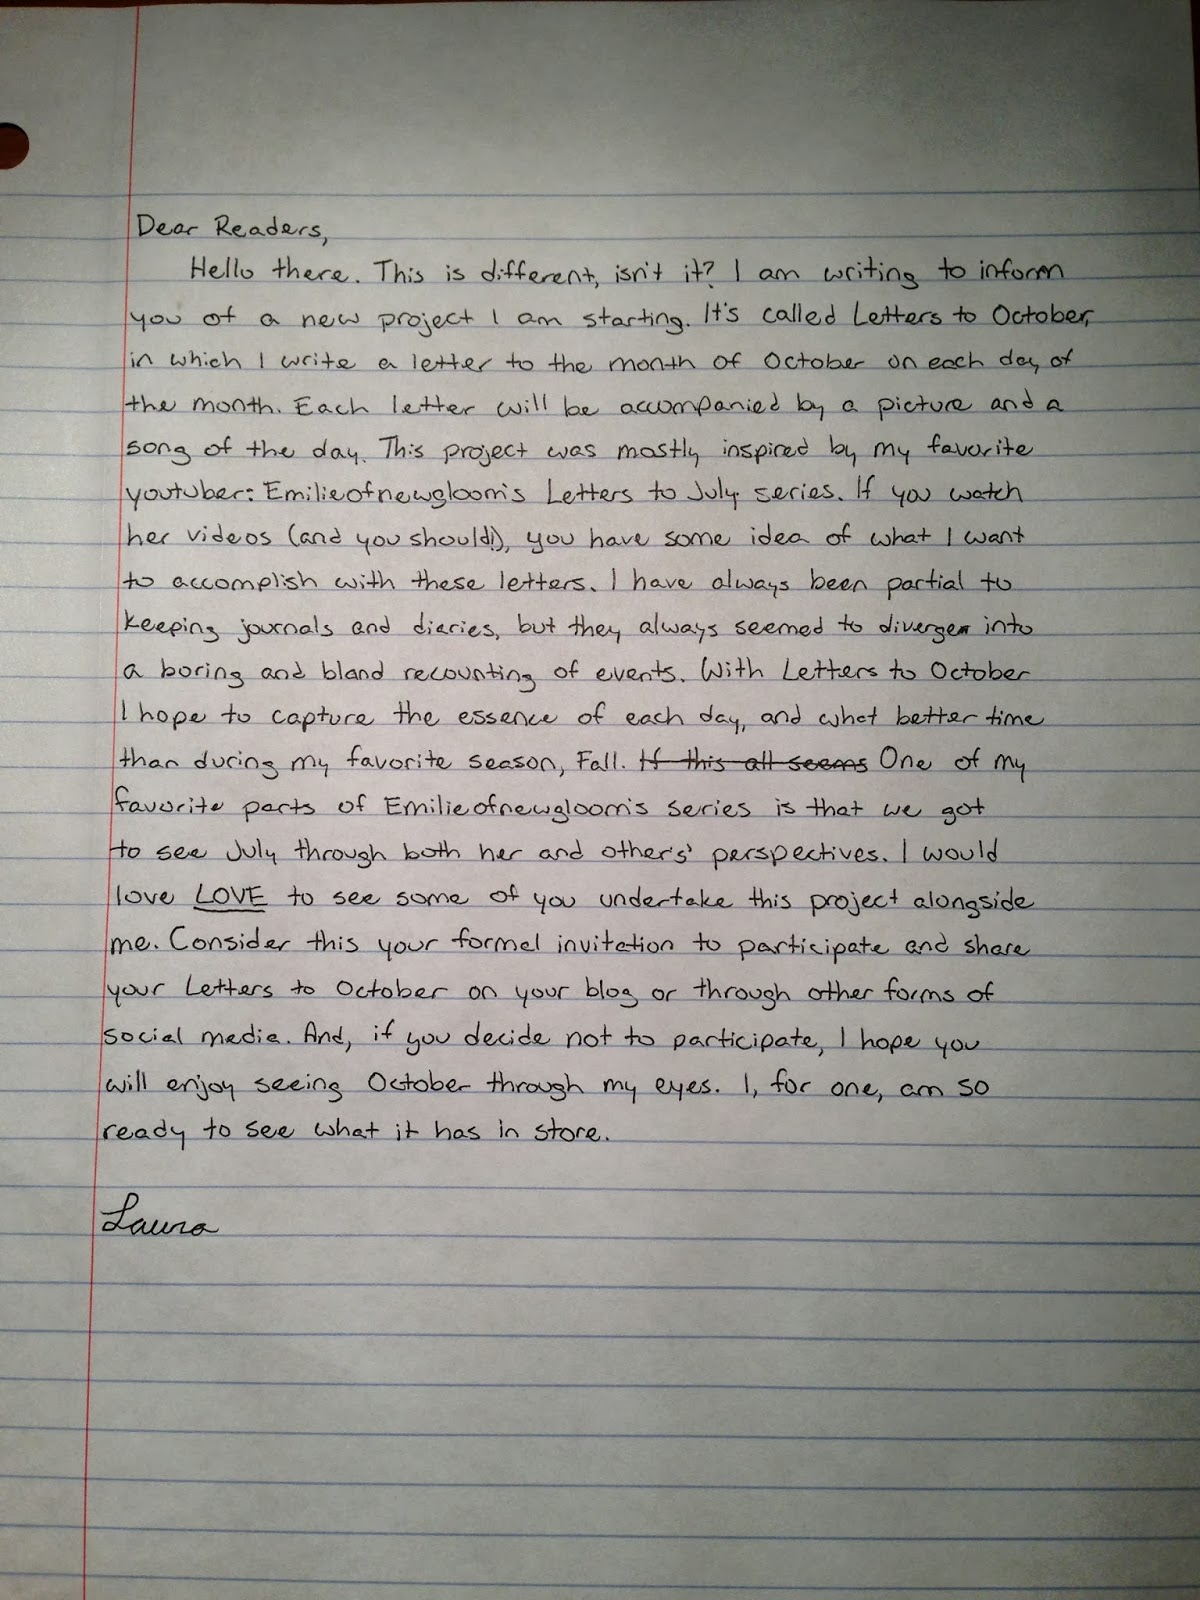 Dear Readers,
Hello there. This is different, isn't it? I am writing to inform
you of a new project I am starting. It's called Letters to October,
in which I write a letter to the month of October on each day of
the month. Each letter will be accompanied by a picture and a
song of the day. This project was mostly inspired by my favorite
youtuber: Emilieofnewgloom's Letters to July series. If you watch
her videos (and you should!), you have some idea of what I want
to accomplish with these letters. I have always been partial to
keeping journals and diaries, but they always seemed to diverge into
a boring and bland recounting of events. With Letters to October
I hope to capture the essence of each day, and what better time
than during my favorite season, Fall. If this all seems One of my
favorite parts of Emilieofnewgloom's series is that we got
to see July through both her and other's' perspectives. I would
love LOVE to see some of you undertake this project alongside
me. Consider this your formal invitation to participate and share
your Letters to October on your blog or through other forms of
social media. And, if you decide not to participate, I hope you
will enjoy seeing October through my eyes. I, for one, am so
ready to see what it has in store.
Laura